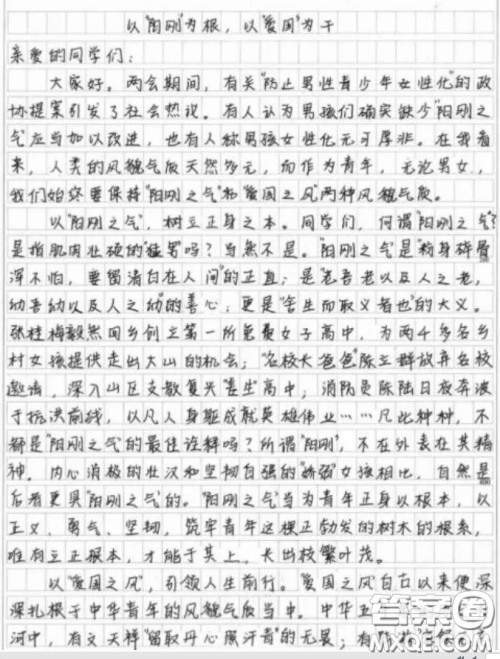 以"阳刚"为根，以"爱国"为干
亲爱的同学们：
大家好。两会期间，有关"防止男性青少年女性化"的政
协提案引发了社会热议。有人认为男孩们确实缺少"阳刚之
气"应当加以改进，也有人称男孩女性化无可厚非。在我看
来，人类的风貌气质天然多元，而作为青年，无论男女，
我们始终要保持"阳刚之气"和"爱国之风"两种风貌气质。
以"阳刚之气"，树立正身之本。同学们，何谓"阳刚之气"？
是指肌肉壮硕的"猛男"吗？当然不是。"阳刚之气"是"粉身碎骨
浑不怕，要留清白在人间"的正直；是"老吾老以及人之老，
幼吾幼以及人之幼"的善心；更是"舍生而取义者也"的大义。
张桂梅毅然回乡创立第一所免费女子高中，为两千多名乡
村女孩提供走出大山的机会；"名校长爸爸"陈立群放弃名校
邀请，深入山区支教复兴"差生"高中；消防员陈陆日夜奔波
于抗洪前线，以凡人身躯成就英雄伟业……凡此种种，不
都是"阳刚之气"的最佳诠释吗？所谓"阳刚"，不在外表在其精
神。内心消极的壮汉和坚韧自强的"娇弱"女孩相比，自然是
后者更具"阳刚之气"的。"阳刚之气"当为青年正身以根本，以
正义、勇气、坚韧，筑牢青年这棵正勃发的树木的根系，
唯有立正根本，才能于其上，长出枝繁叶茂。
以"爱国之风"，引领人生前行。"爱国之风"自古以来便深
深扎根于中华青年的风貌气质当中。中华五
河中，有文天祥"留取丹心照汗青"的无畏；有
答案圈